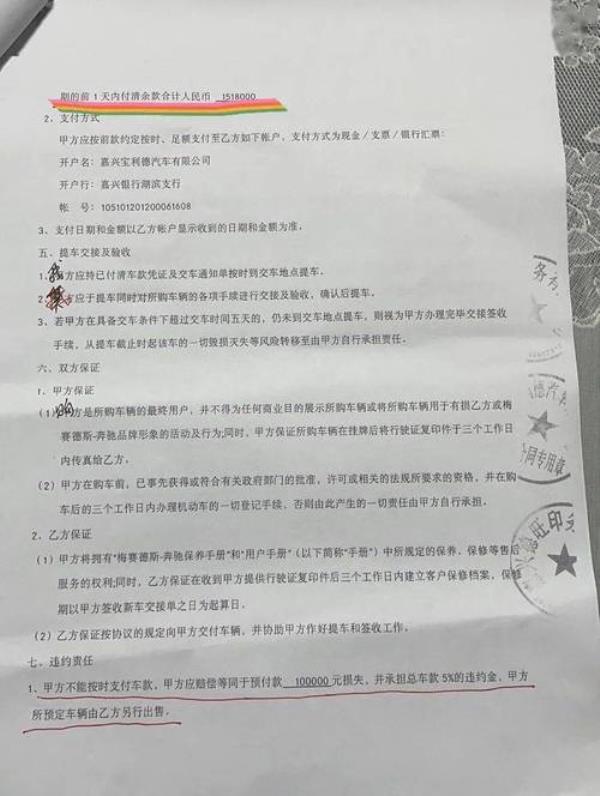 期的前 1 天内付清余款合计人民币 1518000
2、支付方式
甲方应按前款约定按时、足额支付至乙方如下帐户，支付方式为现金／支票／银行汇票：
开户名：嘉兴宝利德汽车有限公司
开户行：嘉兴银行湖滨支行
帐 号：105101201200061608
3、支付日期和金额以乙方帐户显示收到的日期和金额为准。
五、提车交接及验收
1、方应持已付清车款凭证及交车通知单按时到交车地点提车。
2、方应于提车同时对所购车辆的各项手续进行交接及验收，确认后提车。
3、若甲方在具备交车条件下超过交车时间五天的，仍未到交车地点提车，则视为甲方办理完毕交接签收
手续，从提车截止时起该车的一切毁损灭失等风险转移至由甲方自行承担责任。
六、双方保证
1、甲方保证
（1）方是所购车辆的最终用户，并不得为任何商业目的展示所购车辆或将所购车辆用于有损乙方或梅
赛德斯-奔驰品牌形象的活动及行为;同时，甲方保证所购车辆在挂牌后将行驶证复印件于三个工作日
内传真给乙方。
（2）甲方在购车前，已事先获得或符合有关政府部门的批准，许可或相关的法规所要求的资格，并在购
车后的三个工作日内办理机动车的一切登记手续，否则由此产生的一切责任由甲方自行承担。
2、乙方保证
（1）甲方将拥有"梅赛德斯-奔驰保养手册"和"用户手册"（以下简称"手册"）中所规定的保养、保修等售后
服务的权利;同时，乙方保证在收到甲方提供行驶证复印件后三个工作日内建立客户保修档案，保修
期以甲方签收新车交接单之日为起算日。
（2）乙方保证按协议的规定向甲方交付车辆，并协助甲方作好提车和签收工作。
七、违约责任
1、甲方不能按时支付车款，甲方应赔偿等同于预付款 100000 元损失，并承担总车款 5%的违约金，甲方
所预定车辆由乙方另行出售。
德汽
同专用章
德旺印